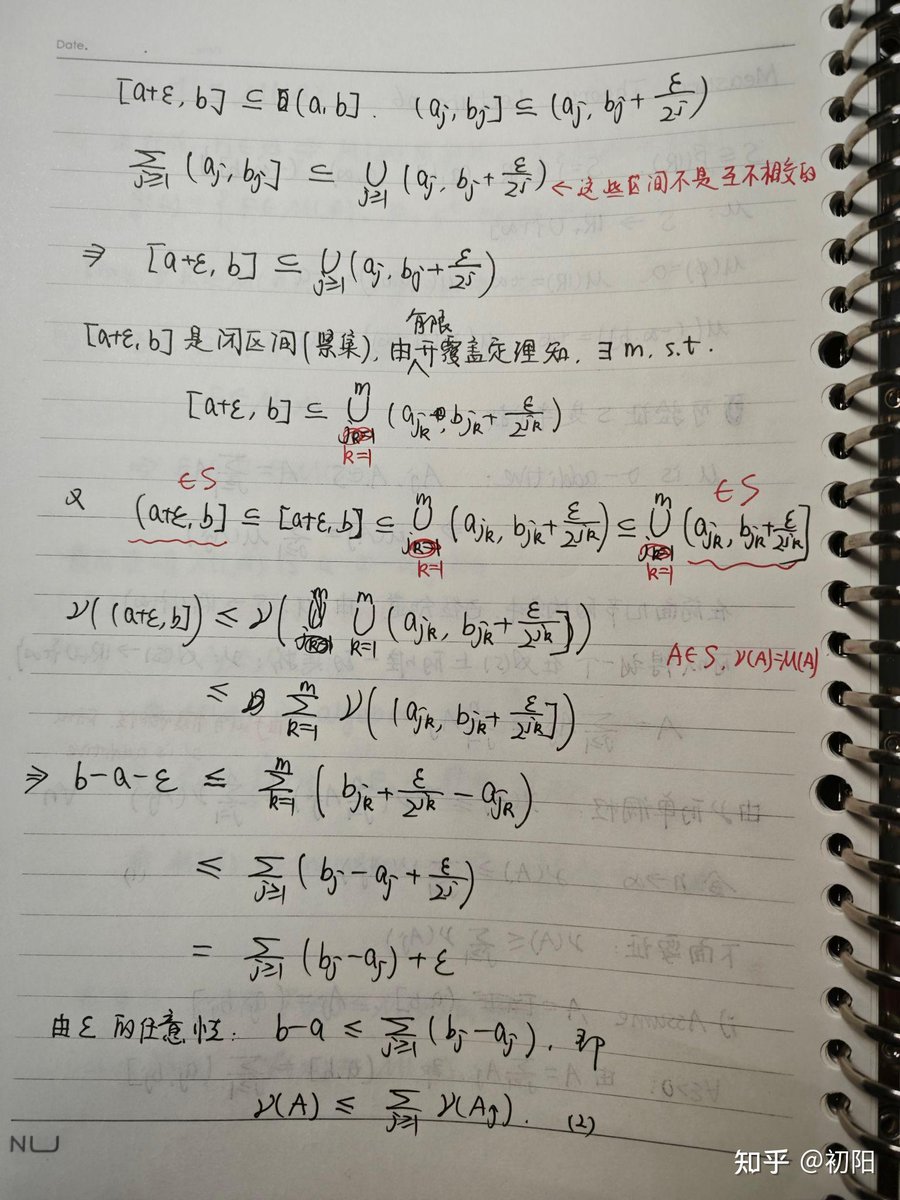 Date.
[a+ε, b] ⊆ (a, b]. (aⱼ, bⱼ] ⊆ (aⱼ, bⱼ + ε/2ʲ)
∑_{j≥1} (aⱼ, bⱼ] ⊆ ⋃_{j≥1} (aⱼ, bⱼ + ε/2ʲ) ← 这些区间不是互不相交的
⇒ [a+ε, b] ⊆ ⋃_{j≥1} (aⱼ, bⱼ + ε/2ʲ)
[a+ε, b] 是闭区间(紧集), 由有限开覆盖定理知, ∃ m, s.t.
[a+ε, b] ⊆ ⋃_{k=1}^{m} (a_{j_k}, b_{j_k} + ε/2^{j_k})
∈ S ∈ S
又 (a+ε, b] ⊆ [a+ε, b] ⊆ ⋃_{k=1}^{m} (a_{j_k}, b_{j_k} + ε/2^{j_k}) ⊆ ⋃_{k=1}^{m} (a_{j_k}, b_{j_k} + ε/2^{j_k}]
ν((a+ε, b]) ≤ ν(⋃_{k=1}^{m} (a_{j_k}, b_{j_k} + ε/2^{j_k}])
A∈S, ν(A)=μ(A)
≤ ∑_{k=1}^{m} ν((a_{j_k}, b_{j_k} + ε/2^{j_k}])
⇒ b-a-ε ≤ ∑_{k=1}^{m} (b_{j_k} + ε/2^{j_k} - a_{j_k})
≤ ∑_{j≥1} (bⱼ - aⱼ + ε/2ʲ)
= ∑_{j≥1} (bⱼ - aⱼ) + ε
由 ε 的任意性: b-a ≤ ∑_{j≥1} (bⱼ - aⱼ), 即
ν(A) ≤ ∑_{j≥1} ν(Aⱼ). (2)
知乎 @初阳